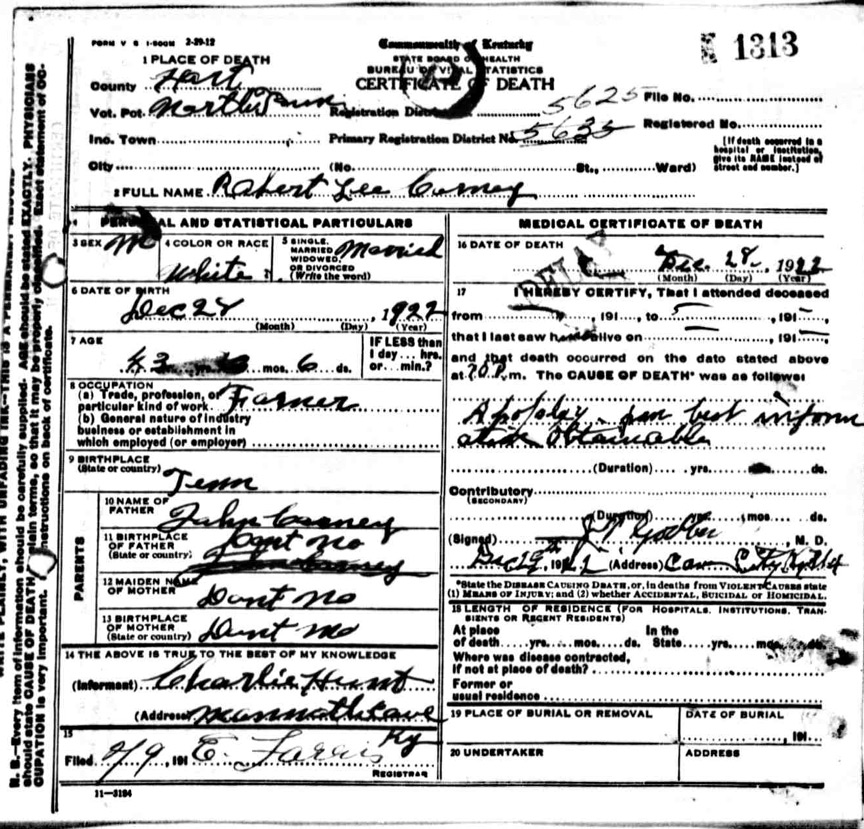 FORM V S 1-500M 2-29-12
Commonwealth of Kentucky
STATE BOARD OF HEALTH
BUREAU OF VITAL STATISTICS
CERTIFICATE OF DEATH
1313
1 PLACE OF DEATH
County Hart
Vot. Pct. Registration District 5625 File No.
Inc. Town Primary Registration District No. 5635 Registered No.
City (No. St., Ward)
[If death occurred in a hospital or institution, give its NAME instead of street and number.]
2 FULL NAME Robert Lee
PERSONAL AND STATISTICAL PARTICULARS
3 SEX M
4 COLOR OR RACE White
5 SINGLE, MARRIED WIDOWED, OR DIVORCED (Write the word) Married
6 DATE OF BIRTH
Dec 1922
(Month) (Day) (Year)
7 AGE
43 yrs. mos. 6 ds.
IF LESS than 1 day... hrs. or... min.?
8 OCCUPATION
(a) Trade, profession, or particular kind of work Farmer
(b) General nature of industry
business or establishment in
which employed (or employer)
9 BIRTHPLACE
(State or country) Tenn
PARENTS
10 NAME OF FATHER John
11 BIRTHPLACE OF FATHER (State or country) Dont no
12 MAIDEN NAME OF MOTHER Dont no
13 BIRTHPLACE OF MOTHER (State or country) Dont no
14 THE ABOVE IS TRUE TO THE BEST OF MY KNOWLEDGE
(Informant) Charlie Hunt
(Address) Mammoth Cave Ky
15
Filed 2/9, 191 E. Farris
REGISTRAR
11-3184
MEDICAL CERTIFICATE OF DEATH
16 DATE OF DEATH
DELAY
Dec. 28, 1922
(Month) (Day) (Year)
17 I HEREBY CERTIFY, That I attended deceased
from , 191 , to , 191
that I last saw h alive on , 191
and that death occurred on the date stated above
at P.m. The CAUSE OF DEATH* was as follows:
best inform
ation obtainable
(Duration) yrs. ds.
Contributory
(SECONDARY)
(Duration) mos. ds.
(Signed) M. D.
(Address) City
*State the DISEASE CAUSING DEATH, or, in deaths from VIOLENT CAUSES state
(1) MEANS OF INJURY; and (2) whether ACCIDENTAL, SUICIDAL or HOMICIDAL.
18 LENGTH OF RESIDENCE (FOR HOSPITALS, INSTITUTIONS, TRANSIENTS OR RECENT RESIDENTS)
At place In the
of death yrs. mos. ds. State yrs. mos. ds.
Where was disease contracted,
If not at place of death?
Former or
usual residence
19 PLACE OF BURIAL OR REMOVAL
DATE OF BURIAL
, 191
20 UNDERTAKER
ADDRESS
N. B.—Every item of information should be carefully supplied. AGE should be stated EXACTLY. PHYSICIANS
should state CAUSE OF DEATH in plain terms, so that it may be properly classified. Exact statement of OC-
CUPATION is very important. instructions on back of certificate.
WRITE PLAINLY, WITH UNFADING INK—THIS IS A PERMANENT RECORD